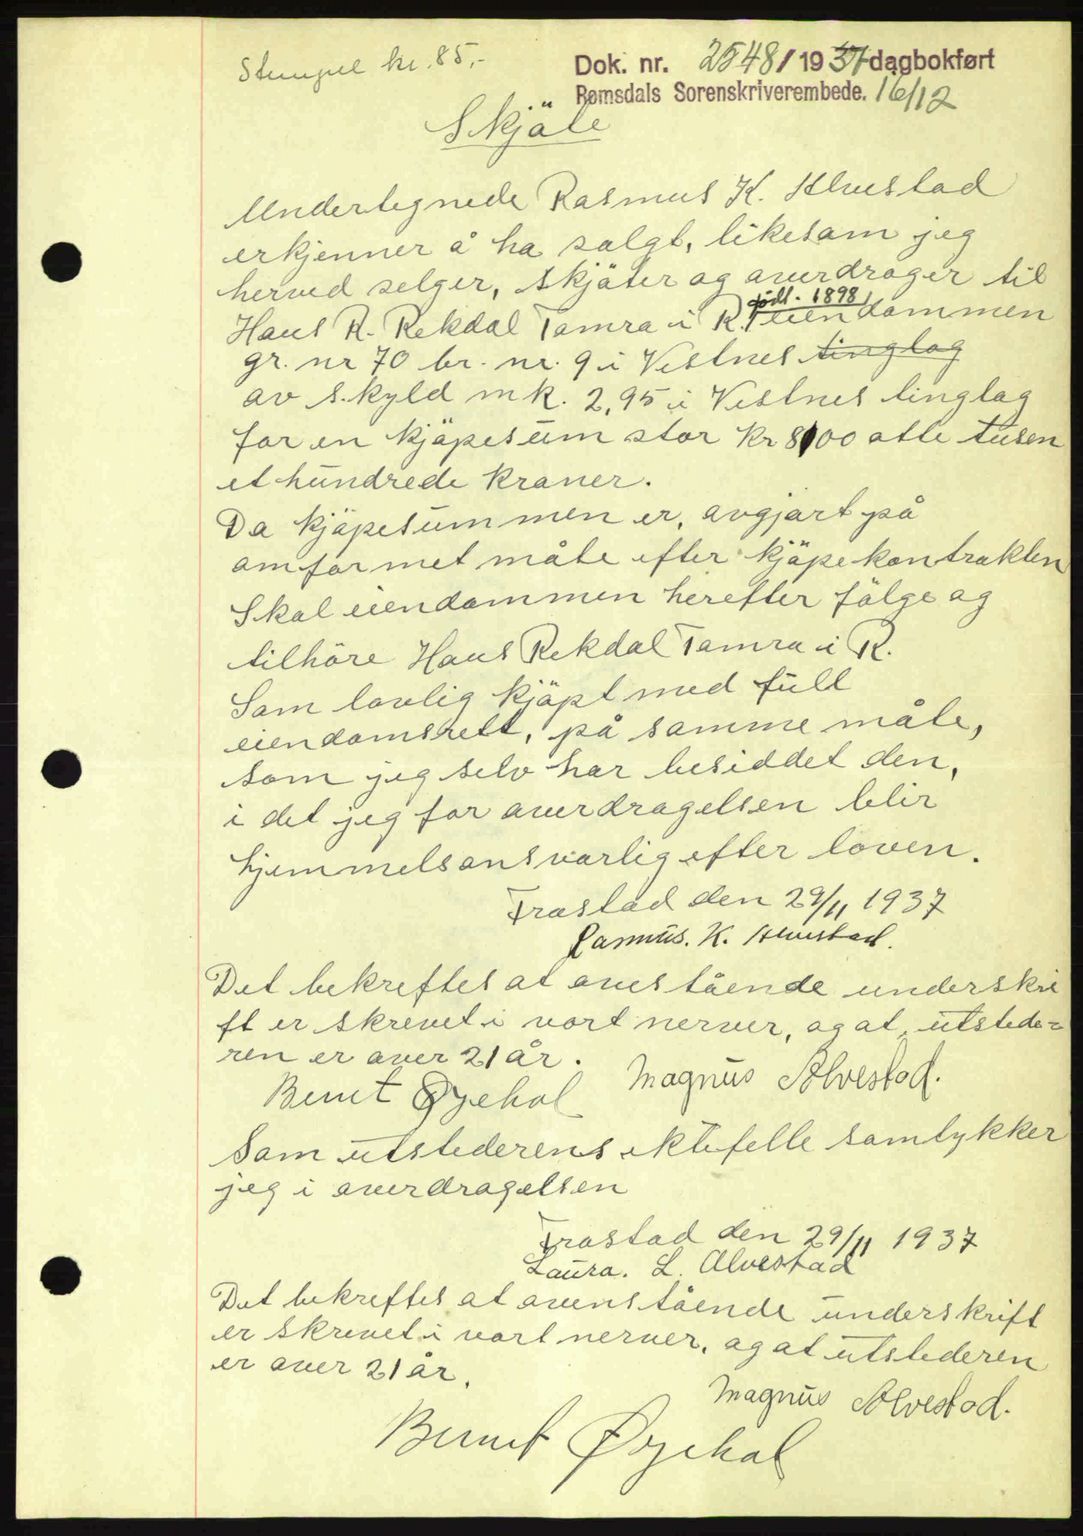 Stempel kr. 85,-
Dok. nr. 2548/1937 dagbokført
Romsdals Sorenskriverembede. 16/12
Skjäte
Undertegnede Rasmus K. Alvestad
erkjenner å ha solgt, likesom jeg
herved selger, skjöter og overdrager til
född. 1898
Hans R. Rekdal Tomra i R. eiendommen
gr. nr 70 br. nr. 9 i Vestnes tinglag
av skyld mk. 2,95 i Vestnes tinglag
for en kjöpesum stor kr 8100 otte tusen
et hundrede kroner.
Da kjöpesummen er, avgjort på
omformet måte efter kjöpekontrakten
Skal eiendommen herefter fölge og
tilhöre Hans Rekdal Tomra i R.
Som lovlig kjöpt med full
eiendomsrett, på samme måte,
som jeg selv har besiddet den,
i det jeg for overdragelsen blir
hjemmelsansvarlig efter loven.
Frostad den 29/11 1937
Rasmus. K. Alvestad.
Det bekreftes at ovestående underskri
ft er skrevet i vort nerver, og at, utstede=
ren er over 21 år.
Magnus Alvestad.
Bernt Øyehol
Som utstederens ektefelle samtykker
jeg i overdragelsen
Frostad den 29/11 1937
Laura. L. Alvestad
Det bekreftes at ovenstående underskrift
er skrevet i vort nerver, og at utstederen
er over 21 år.
Magnus Alvestad.
Bernt Øyehol